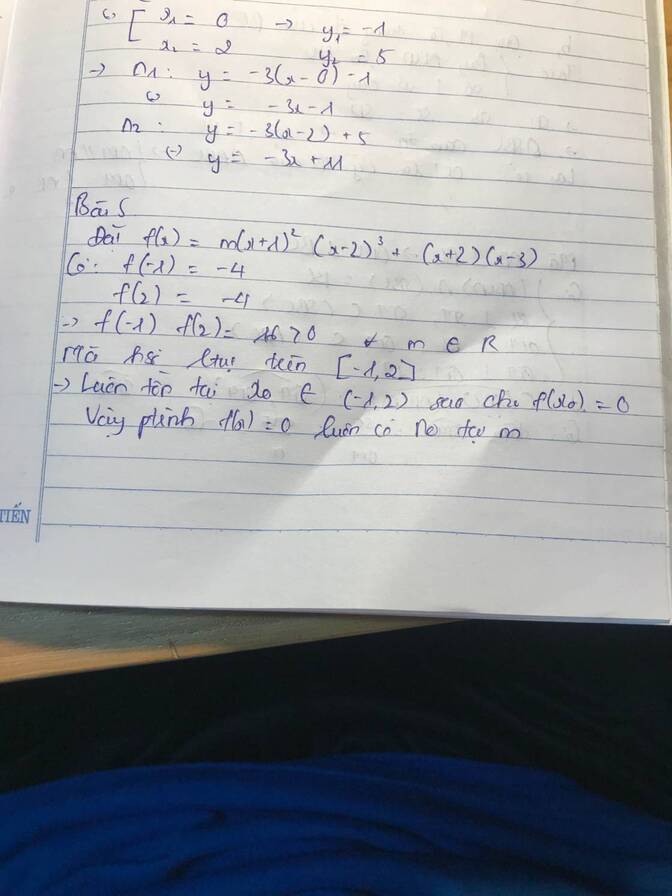 (-) [ x₁ = 0 → y₁ = -1
x₂ = 2 y₂ = 5
→ n1: y = -3(x - 0) - 1
(-) y = -3x - 1
n2: y = -3(x - 2) + 5
(-) y = -3x + 11
Bài 5
Đặt f(x) = m(x+1)² (x-2)³ + (x+2)(x-3)
Có: f(-1) = -4
f(2) = -4
→ f(-1) f(2) = 16 > 0 ∀ m ∈ R
Mà hs ltục trên [-1,2]
→ Luôn tồn tại x₀ ∈ (-1,2) sao cho f(x₀) = 0
Vậy ptrình f(x) = 0 luôn có no tại m
TIẾN